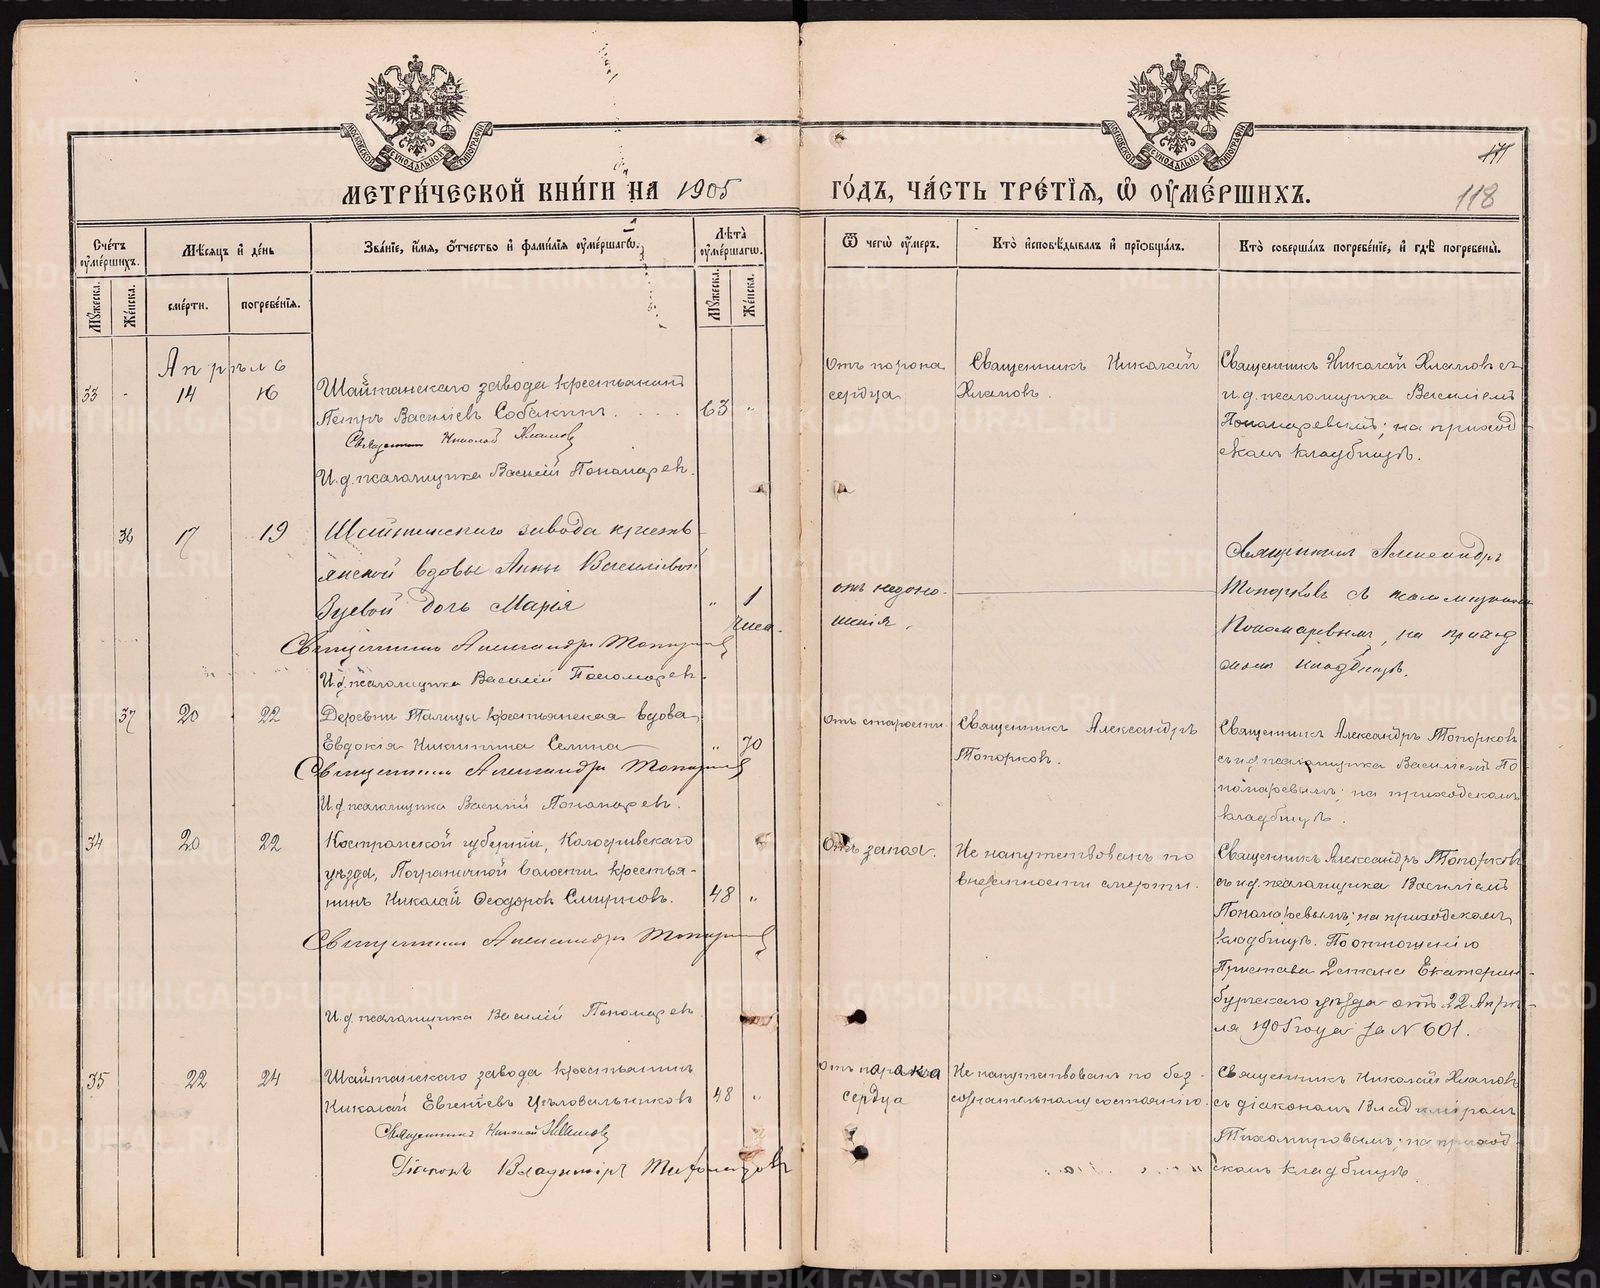 МЕТРИ́ЧЕСКОЙ КНИ́ГИ НА 1905
ГО́ДЪ, ЧА́СТЬ ТРЕ́ТІѦ, Ѡ҆ ОУ҆МЕ́РШИХЪ.
171
118
Сче́тъ оу҆ме́ршихъ.
Мѣ́сяцъ и҆ де́нь
Зва́ніе, и҆́мя, о҆́тчество и҆ фами́лія оу҆ме́ршагѡ.
Лѣ́та оу҆ме́ршагѡ.
Ѿ чегѡ̀ оу҆́меръ.
Кто̀ и҆сповѣ́дывалъ и҆ прїѡбща́лъ.
Кто̀ соверша́лъ погребе́ніе, и҆ гдѣ̀ погребены̀.
Му́жеска.
Же́нска.
сме́рти.
погребе́нія.
Му́жеска.
Же́нска.
Апрѣль
33 - 14 16
Шайтанскаго завода крестьянинъ
Петръ Василіевъ Собакинъ . . . . 63 "
Священникъ Николай Хламовъ
И.д. псаломщика Василій Пономаревъ.
Отъ порока
сердца
Священникъ Николай
Хламовъ.
Священникъ Николай Хламовъ съ
и.д. псаломщика Василіемъ
Пономаревымъ; на приход-
скомъ кладбищѣ.
36 17 19
Шайтанскаго завода кресть-
янской вдовы Анны Василіевой
Зуевой дочь Марія " 1
часа.
Священникъ Александръ Топорковъ
И.д. псаломщика Василій Пономаревъ.
отъ недоно-
шенія.
Священникъ Александръ
Топорковъ съ псаломщикомъ
Пономаревымъ, на приход
скомъ кладбищѣ.
37 20 22
Деревни Талицы крестьянская вдова
Евдокія Никитина Селина " 70
Священникъ Александръ Топорковъ
И.д. псаломщика Василій Пономаревъ.
Отъ старости
Священникъ Александръ
Топорковъ.
Священникъ Александръ Топорковъ
съ и.д. псаломщика Василіемъ По-
номаревымъ; на приходскомъ
кладбищѣ.
34 20 22
Костромской губерніи, Кологривскаго
уѣзда, Пограничной волости крестья-
нинъ Николай Ѳеодоровъ Смирновъ. 48 "
Священникъ Александръ Топорковъ
И.д. псаломщика Василій Пономаревъ
Отъ запоя.
Не напутствованъ по
внезапности смерти.
Священникъ Александръ Топорковъ
съ и.д. псаломщика Василіемъ
Пономаревымъ; на приходскомъ
кладбищѣ. По отношенію
Пристава 2 стана Екатерин-
бургскаго уѣзда отъ 22 Апрѣ-
ля 1905 года за N 601.
35 22 24
Шайтанскаго завода крестьянинъ
Николай Евгеніевъ Цѣловальниковъ 48 "
Священникъ Николай Хламовъ
Діаконъ Владиміръ Тихомировъ
Отъ паралича
сердца
Не напутствованъ по без-
сознательному состоянію.
Священникъ Николай Хламовъ
съ діакономъ Владиміромъ
Тихомировымъ; на приход-
скомъ кладбищѣ.
METRIKI.GASO-URAL.RU